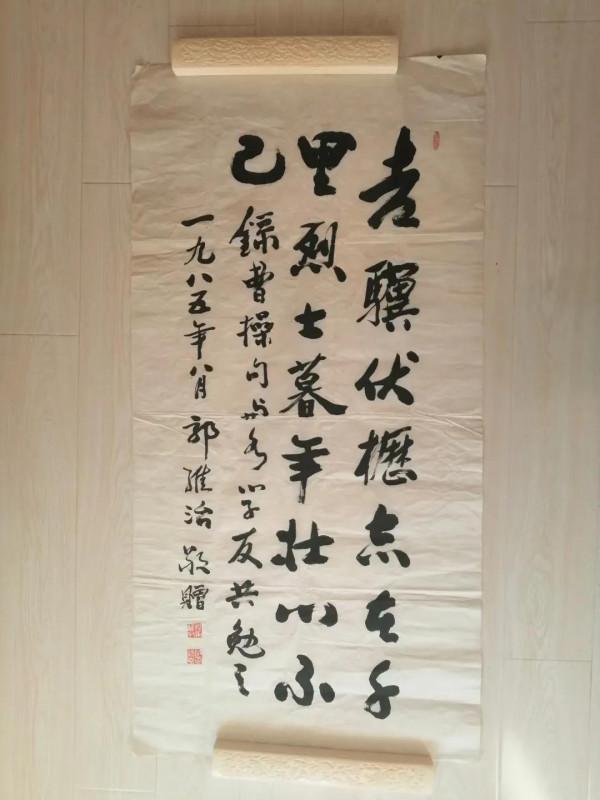 老驥伏櫪志在千
里烈士暮年壮心不
已
錄曹操句与学友共勉之
一九八五年八月郭維治敬贈